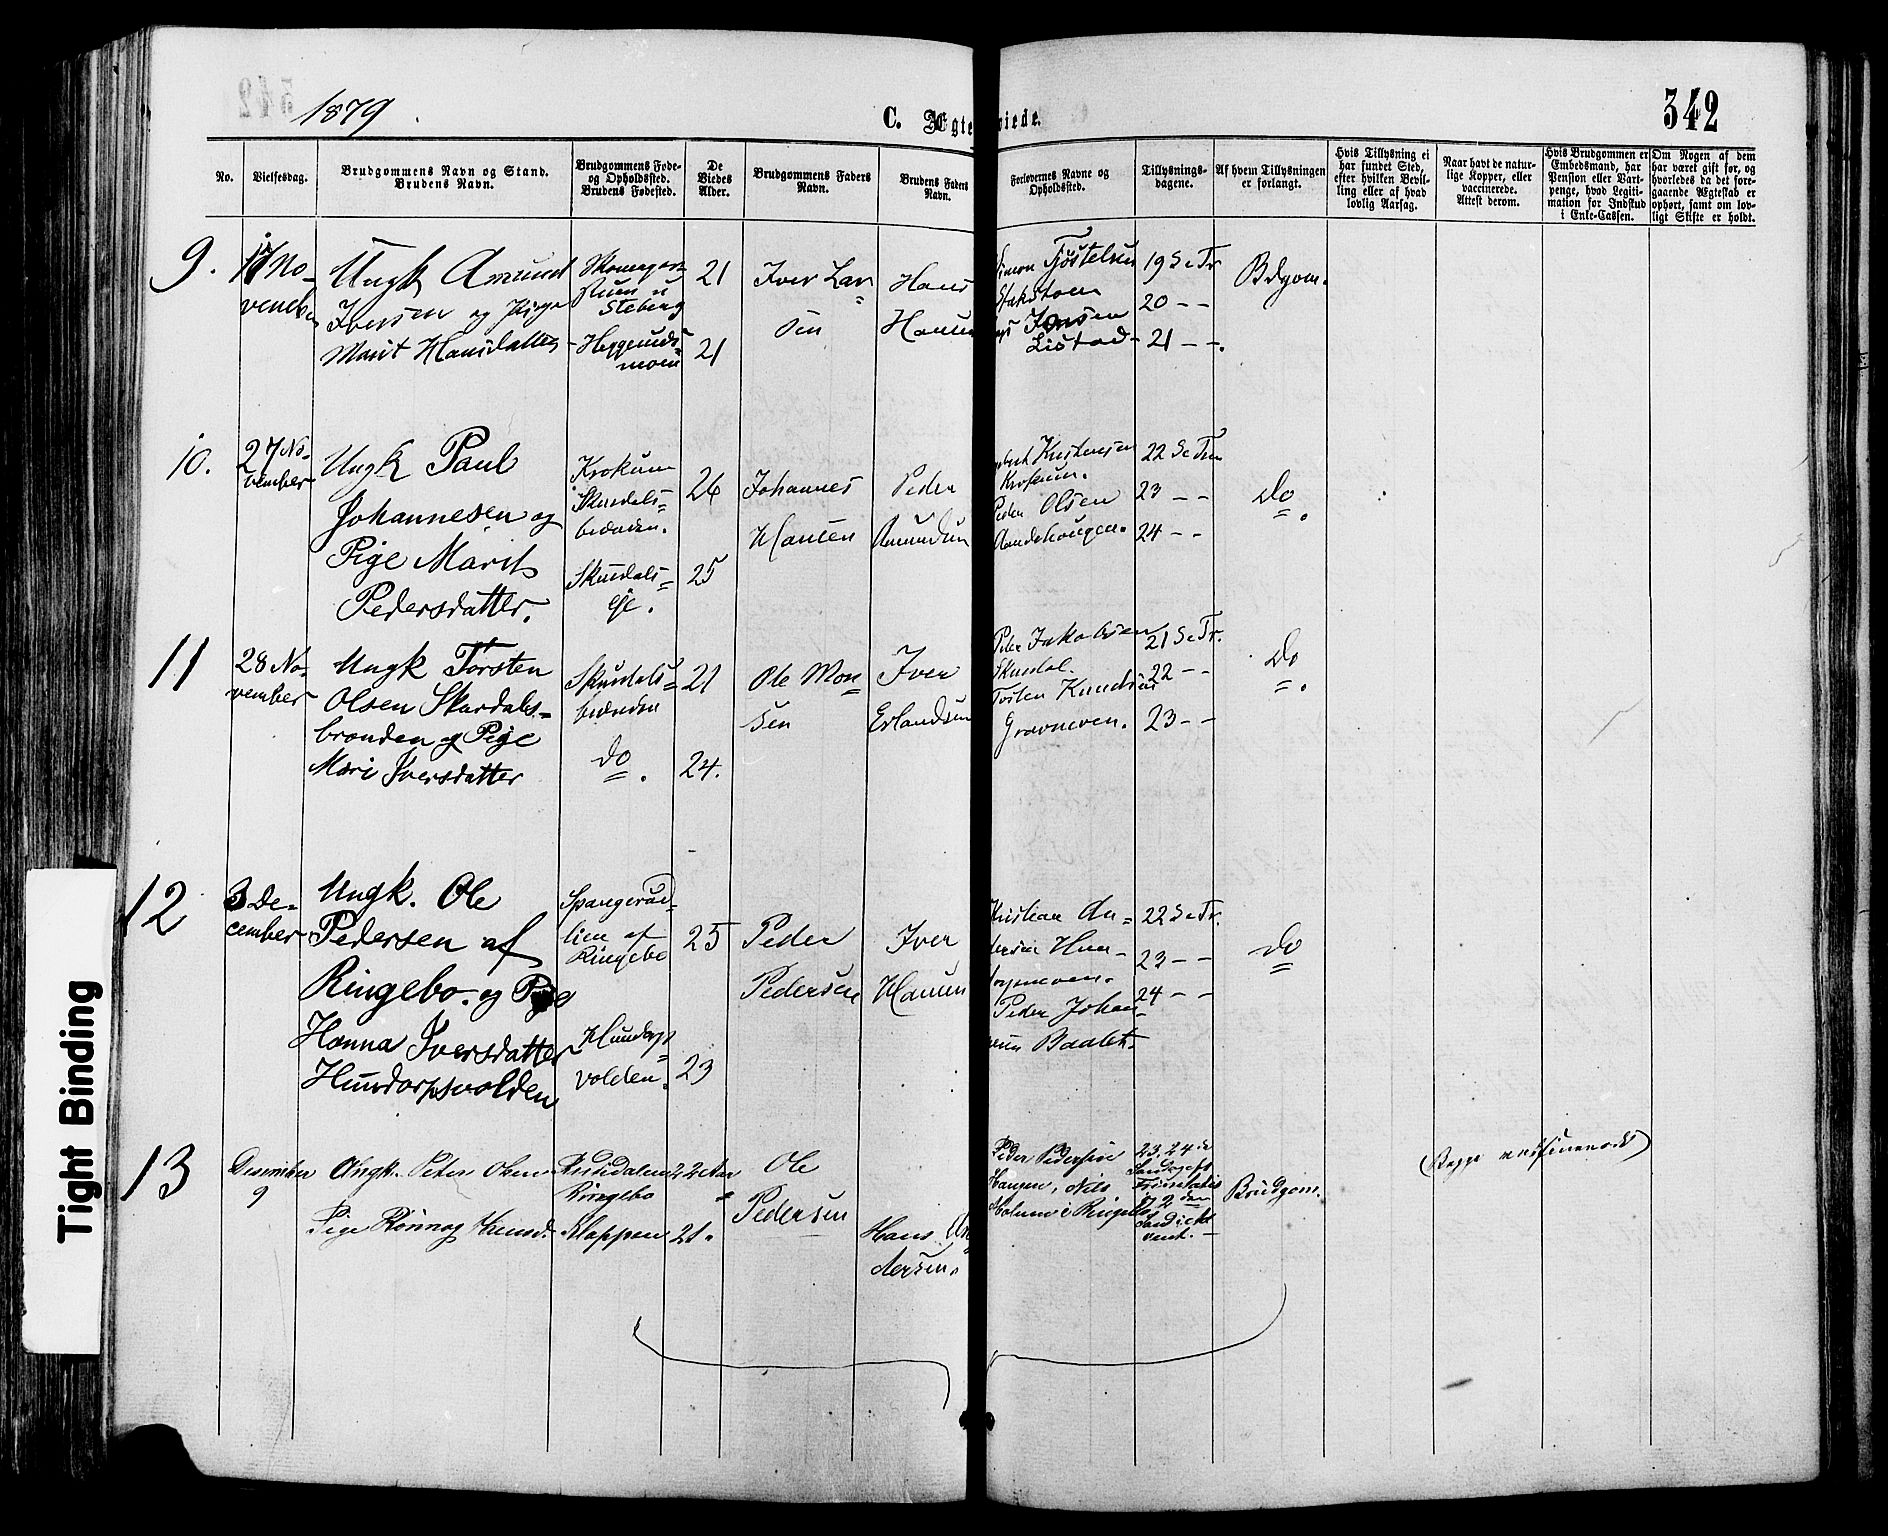 1879
C. Ægte
viede.
342
No.
Vielsesdag.
Brudgommens Navn og Stand.
Brudens Navn.
Brudgommens Føde-
og Opholdssted.
Brudens Fødested.
De
Viedes
Alder.
Brudgommens Faders
Navn.
Brudens Faders
Navn.
Forlovernes Navne og
Opholdssted.
Tillysnings-
dagene.
Af hvem Tillysningen
er forlangt.
Hvis Tillysning ei
har fundet Sted,
efter hvilken Bevil-
ling eller af hvad
lovlig Aarsag.
Naar havt de natur-
lige Kopper, eller
vaccinerede.
Attest derom.
Hvis Brudgommen er
Embedsmand, har
Pension eller Vart-
penge, hvad Legiti-
mation for Indskud
i Enke-Cassen.
Om Nogen af dem
har været gift før, og
hvorledes da det fore-
gaaende Ægteskab er
ophørt, samt om lov-
ligt Skifte er holdt.
9.
No-
vember
Ungk Amund
Iversen og Pige
Marit Hansdatter
Steberg
Heggeruds-
moen
21
21
Iver Lar
sen
Hans
Hansen
Simon Tjøstelsen
Jonsen
Listad
19 S e Tr
20 - -
21 - -.
Bdgom.
10.
27 No-
vember
Ungk Paul
Johannesen og
Pige Marit
Pedersdatter.
Krokum
Skurdals-
brænden.
Skurdals-
eje.
26
25
Johannes
Hansen
Peder
Amundsen
Kristensen
Peder Olsen
22 S e Trin
23 - -
24 - -
Do.
11
28 No-
vember
Ungk Torsten
Olsen Skurdals-
brænden og Pige
Mari Iversdatter
Skurdals-
brænden
do.
21
24.
Ole Mon
sen
Iver
Erlandsen
Peder Jakobsen
Skurdal.
Tosten Knudsen
21 S e Tr.
22 - -
23 - -
Do.
12
3 De-
cember
Ungk. Ole
Pedersen af
Ringebo. og Pige
Hanna Iversdatter
Hundorpsvolden
lien af
Ringebo
Hundorps
volden.
25
23
Peder
Pedersen
Iver
Hansen
Kristian An-
dersen Hun-
Peder Johan-
22 S e Tr.
23 - -
24 - -
Do
13
Desember
9
Ungk. Peter Olsen
Pige Rønnog Hansd.
Ringebo
Kloppen
22 Aar
21.
Ole
Pedersen
Hans An
dersen.
Peder Pedersen
Haugen, Nils
i Ringebo
23, 24 de
Søndag eft
Trinitatis
og 2 den
Sønd i Ad
vent.
Brudgom.
(Begge vaksinerede)
Tight Binding